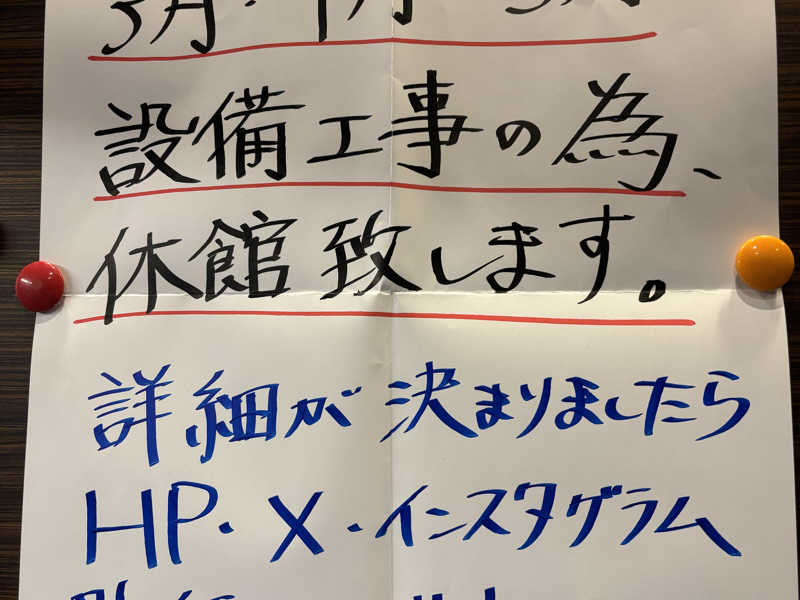 設備工事の為、
休館致します。
詳細が決まりましたら
HP・X・インスタグラム